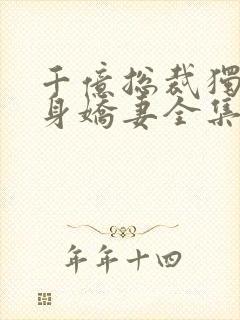 千億総裁獨
身嬌妻全集
年年十四